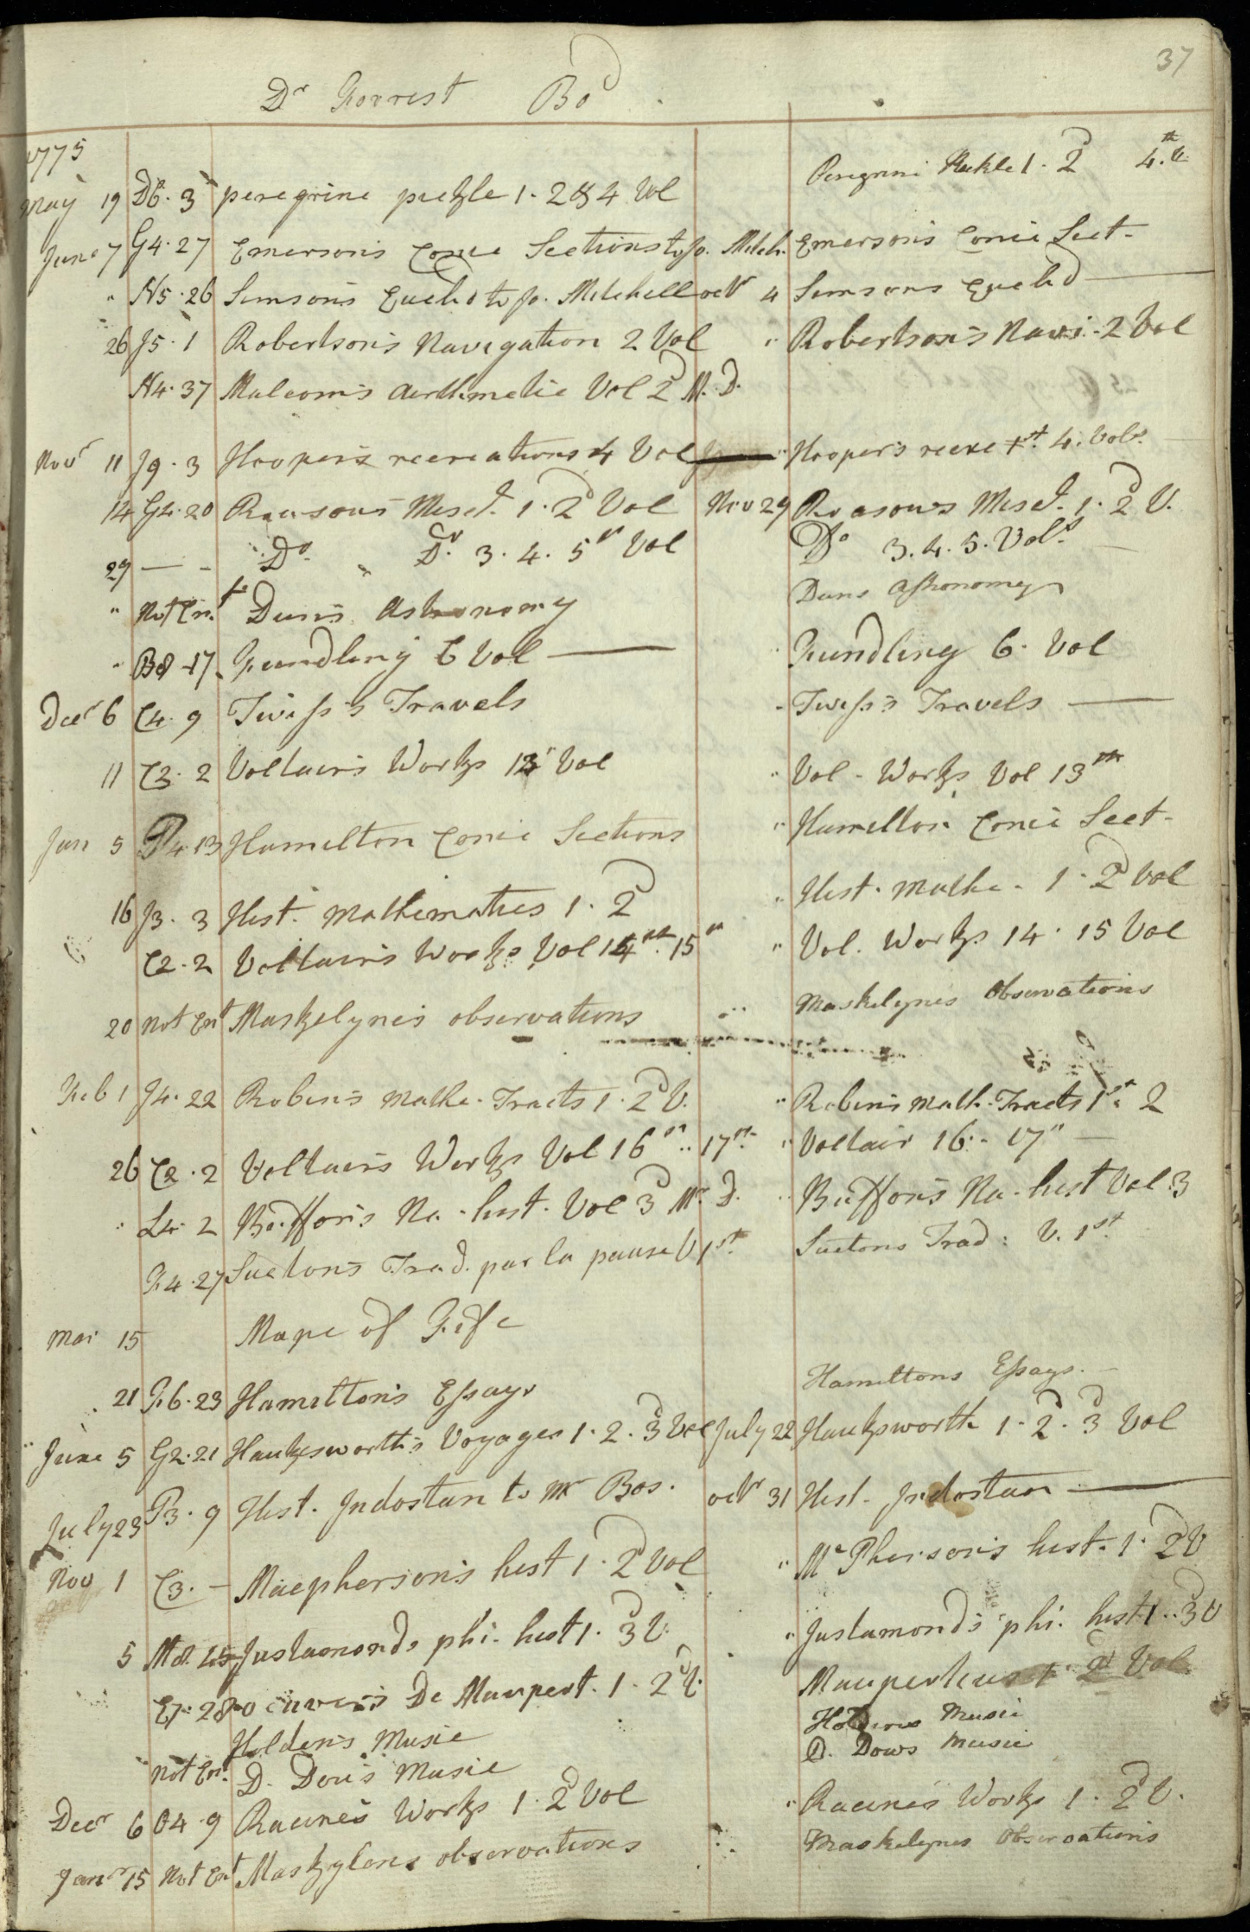 37
Dr Forrest Bod
1775
May 19 D6.3 peregrine pickle 1.2 & 4 Vol Peregrine Pickle 1.2d 4th V.
June 7 G4.27 Emersons Conic Sections to Jo. Mitch. Emersons Conic Sect-
" H5.26 Simsons Euclid to Jo. Mitchell octr 4 Simsons Euclid
26 J5.1 Robertson's Navigation 2 Vol " Robertson's Navi. 2 Vol
H4.37 Malcom's Arithmetic Vol 2d M. D.
Novr 11 J9.3 Hooper's recreations 4 Vol " Hooper's recrets 4. Vols.
14 G4.20 Rawson's Miscl. 1.2d Vol Nov 29 Roason's Miscl. 1.2d V.
29 — - Do. " Do. 3.4.5th Vol Do 3.4.5. Vols
" Not Ent Dun's Astronomy Duns Astronomy
" B8.17 Fundling 6 Vol Fundling 6. Vol
Decr 6 C4.9 Twiss's Travels " Twiss's Travels
11 C3.2 Voltair's Works 13th Vol " Vol. Works Vol 13th
Jan 5 G4.13 Hamilton Conic Sections " Hamilton Conic Sect-
16 J3.3 Hist. Mathematics 1.2d " Hist. Mathe. 1.2d Vol
C2.2 Voltair's Works Vol 14th 15th " Vol. Works 14.15 Vol
20 Not Ent Maskelyne's observations " Maskelynes Observations
Feb 1 J4.22 Robins Mathe. Tracts 1.2d V. " Robin's Math. Tracts 1st 2
26 C2.2 Voltair's Works Vol 16th.. 17th. " Voltair 16.- 17th
" L4.2 Buffon's Na. hist. Vol 3d Mr. D. " Buffon's Na. hist Vol. 3
F4.27 Suetons Trad. par la pause V 1st. Suetons Trad: V. 1st.
Mar 15 Mape of Fife
21 F6.23 Hamilton's Essays Hamiltons Essays.
June 5 G2.21 Haukesworth's Voyages 1.2.3d Vol July 22 Haukesworth 1.2d.3d Vol
July 23 P3.9 Hist. Indostan to Mr Bos. octr 31 Hist. Indostan
Nov 1 C3.- Macpherson's hist 1.2d Vol " McPherson's hist. 1.2d V
5 M8.45 Justamonds phi. hist 1.3d V. " Justamond's phi. hist 1..3d V
E7.28 oeuvers De Maupert. 1.2d V. Maupertius 1.2d Vol
Holden's Music Holdens Music
Not Ent. D. Dow's Music D. Dows Music
Decr 6 O4.9 Racine's Works 1.2d Vol " Racine's Works 1.2d V.
Janr 15 Not Ent Maskylens observations Maskelynes Observations